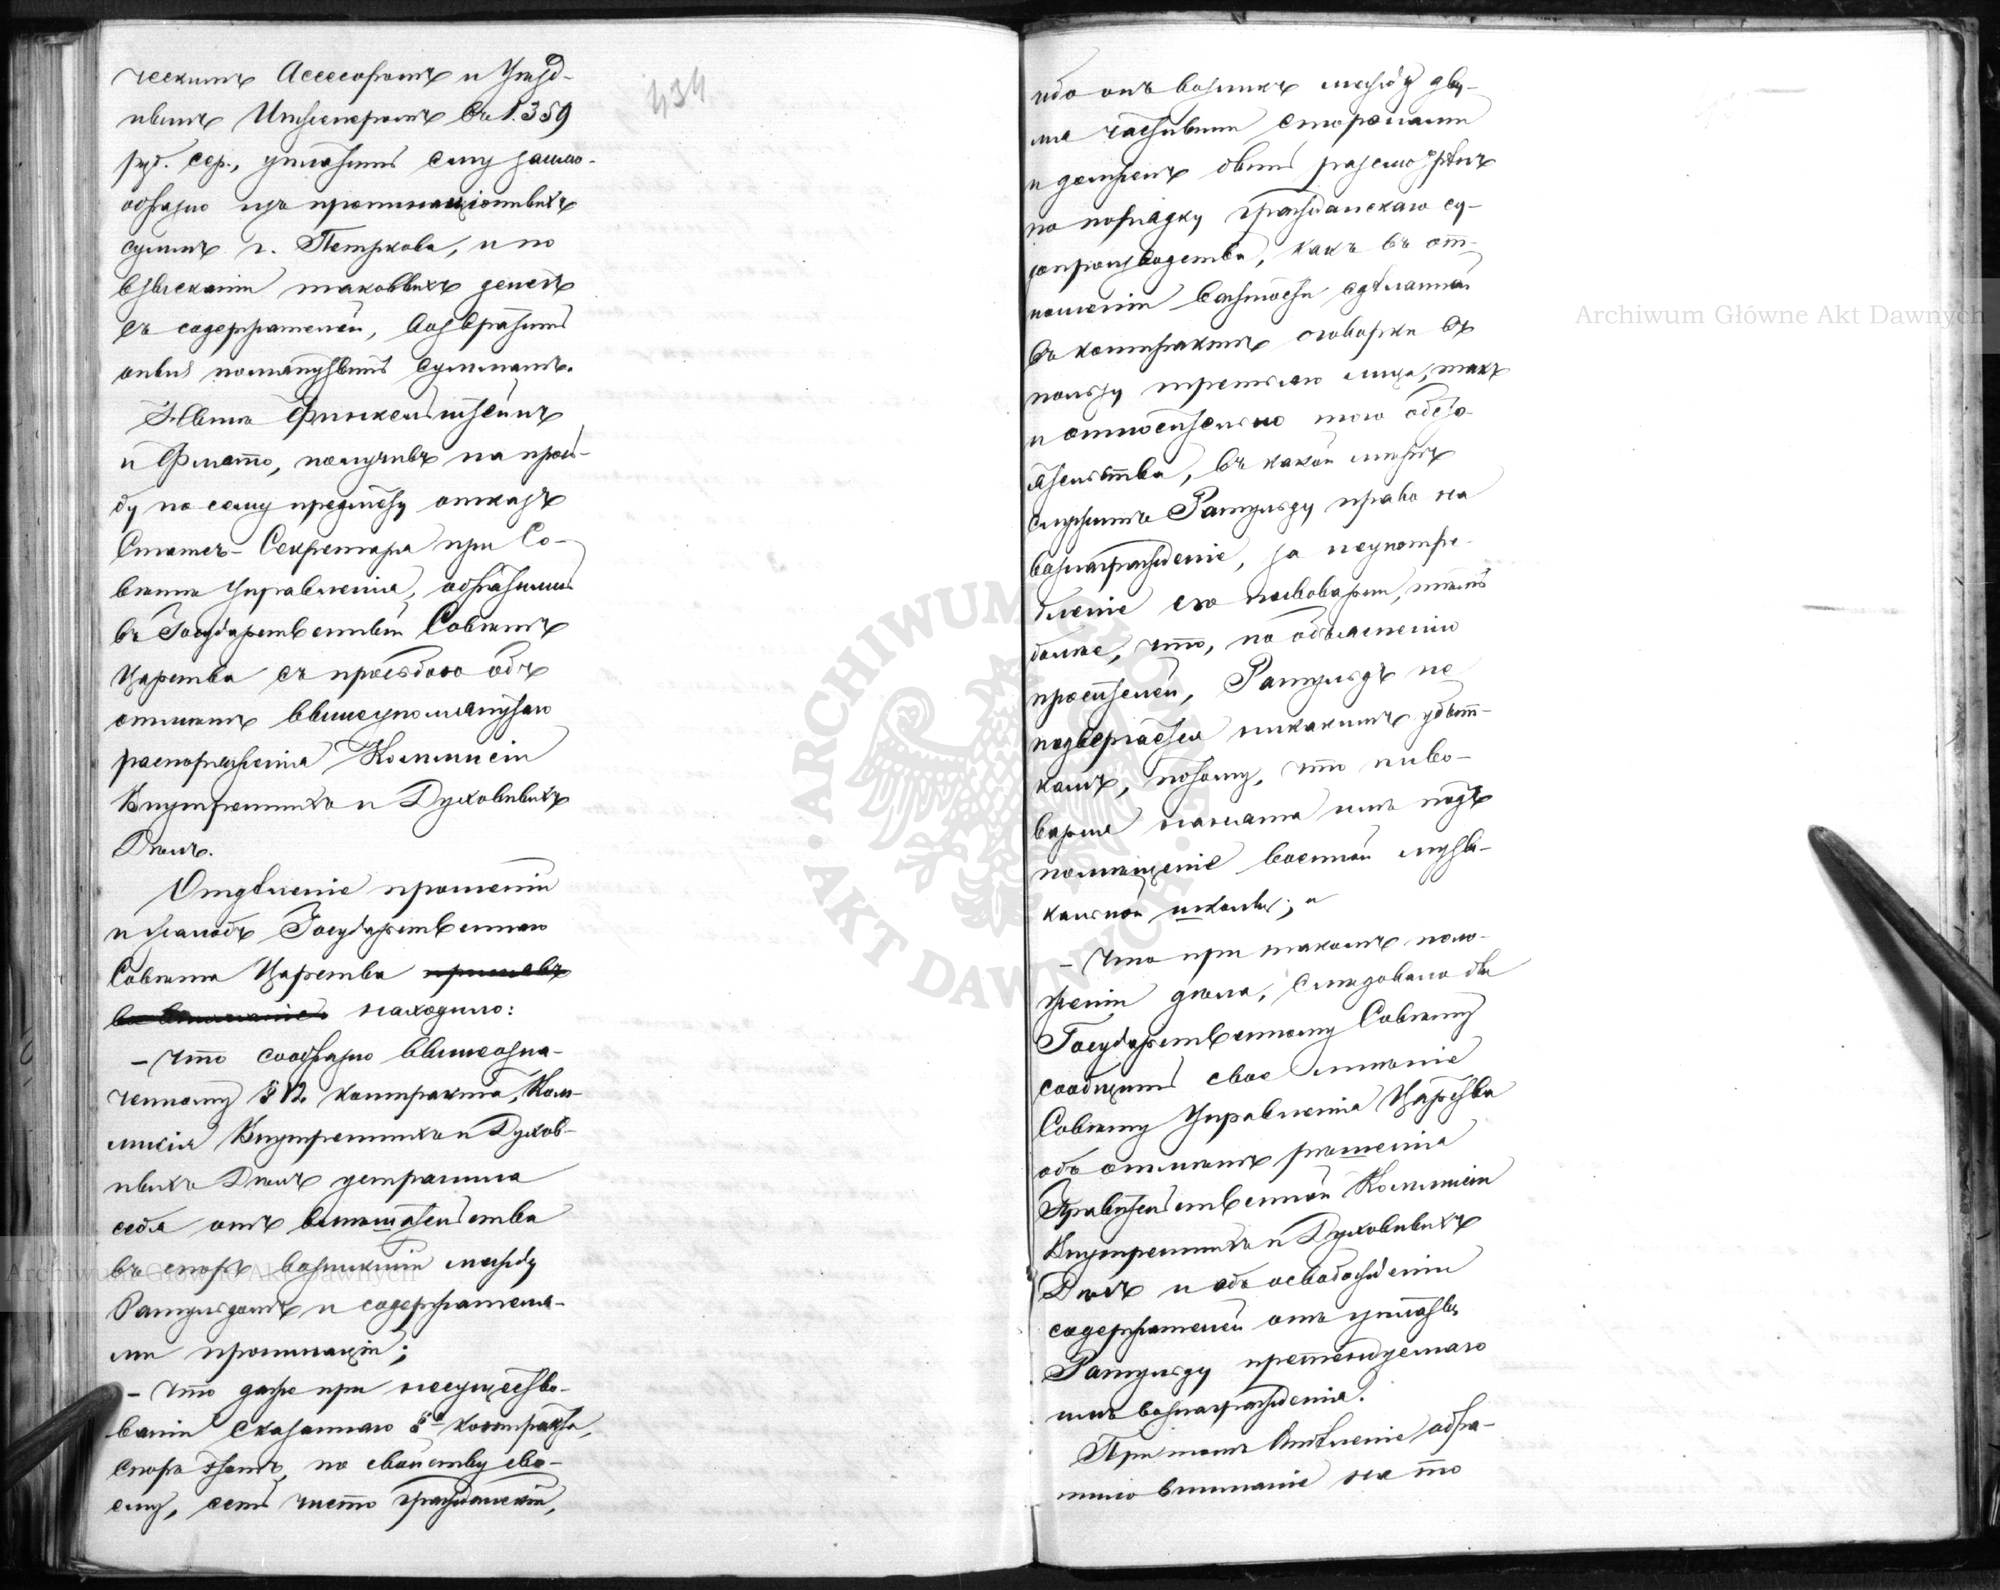 434
ческимъ Асессоромъ и Уѣзд-
нымъ Инженеромъ въ 1.359
руб. сер., уплатить ему заимо-
образно изъ пропинаціонныхъ
суммъ г. Петркова, и по
взысканіи таковыхъ денегъ
съ содержателей, возвратить
оныя помянутымъ суммамъ.
Нынѣ Финкельштейнъ
и Флатто, получивъ на прось-
бу по сему предмету отказъ
Статсъ-Секретаря при Со-
вѣтѣ Управленія, обратились
въ Государственный Совѣтъ
Царства съ просьбою объ
отмѣнѣ вышеупомянутаго
распоряженія Коммисіи
Внутреннихъ и Духовныхъ
Дѣлъ.
Отдѣленіе прошеній
и жалобъ Государственнаго
Совѣта Царства принявъ
во вниманіе находило:
– что сообразно вышеозна-
ченному § 12 контракта, Ком-
мисія Внутреннихъ и Духов-
ныхъ Дѣлъ устранила
себя отъ вмѣшательства
въ споръ возникшій между
Ратушдомъ и содержателя-
ми пропинаціи;
– что даже при несущество-
ваніи сказаннаго §а контракта,
споръ этотъ, по свойству сво-
ему, есть чисто гражданскій,
ибо онъ возникъ между дву-
мя частными сторонами
и долженъ быть разсмотрѣнъ
по порядку гражданскаго су-
допроизводства, какъ въ от-
ношеніи важности сдѣланной
въ контрактѣ оговорки въ
пользу третьяго лица, такъ
и относительно того обсто-
ятельства, въ какой мѣрѣ
служитъ Ратушду право на
вознагражденіе, за неупотре-
бленіе его пивоварни, тѣмъ
болѣе, что, по объясненію
просителей, Ратушдъ не
подвергается никакимъ убыт-
камъ, потому, что пиво-
варня нанята имъ подъ
помѣщеніе военной музы-
кальной школы; и
– Что при такомъ поло-
женіи дѣла, слѣдовало бы
Государственному Совѣту
сообщить свое мнѣніе
Совѣту Управленія Царства
объ отмѣнѣ рѣшенія
Правительственной Коммисіи
Внутреннихъ и Духовныхъ
Дѣлъ и объ освобожденіи
содержателей отъ уплаты
Ратушду претендуемаго
имъ вознагражденія.
При томъ Отдѣленіе обра-
тило вниманіе на то
Archiwum Główne Akt Dawnych
Archiwum Główne Akt Dawnych
ARCHIWUM GŁÓWNE · AKT DAWNYCH ·